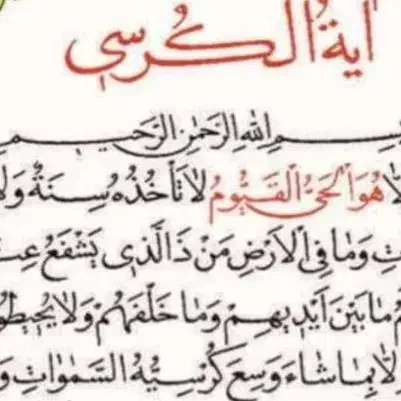 اٰيةُ الْكُرْسِي
بِسْمِ اللّٰهِ الرَّحْمٰنِ الرَّحِيمِ
هُوَ الْحَيُّ الْقَيُّومُ لَا تَأْخُذُهُ سِنَةٌ وَلَا
وَمَا فِي الْاَرْضِ مَنْ ذَا الَّذِي يَشْفَعُ
مَا بَيْنَ اَيْدِيهِمْ وَمَا خَلْفَهُمْ وَلَا
بِمَا شَاءَ وَسِعَ كُرْسِيُّهُ السَّمٰوَاتِ وَ